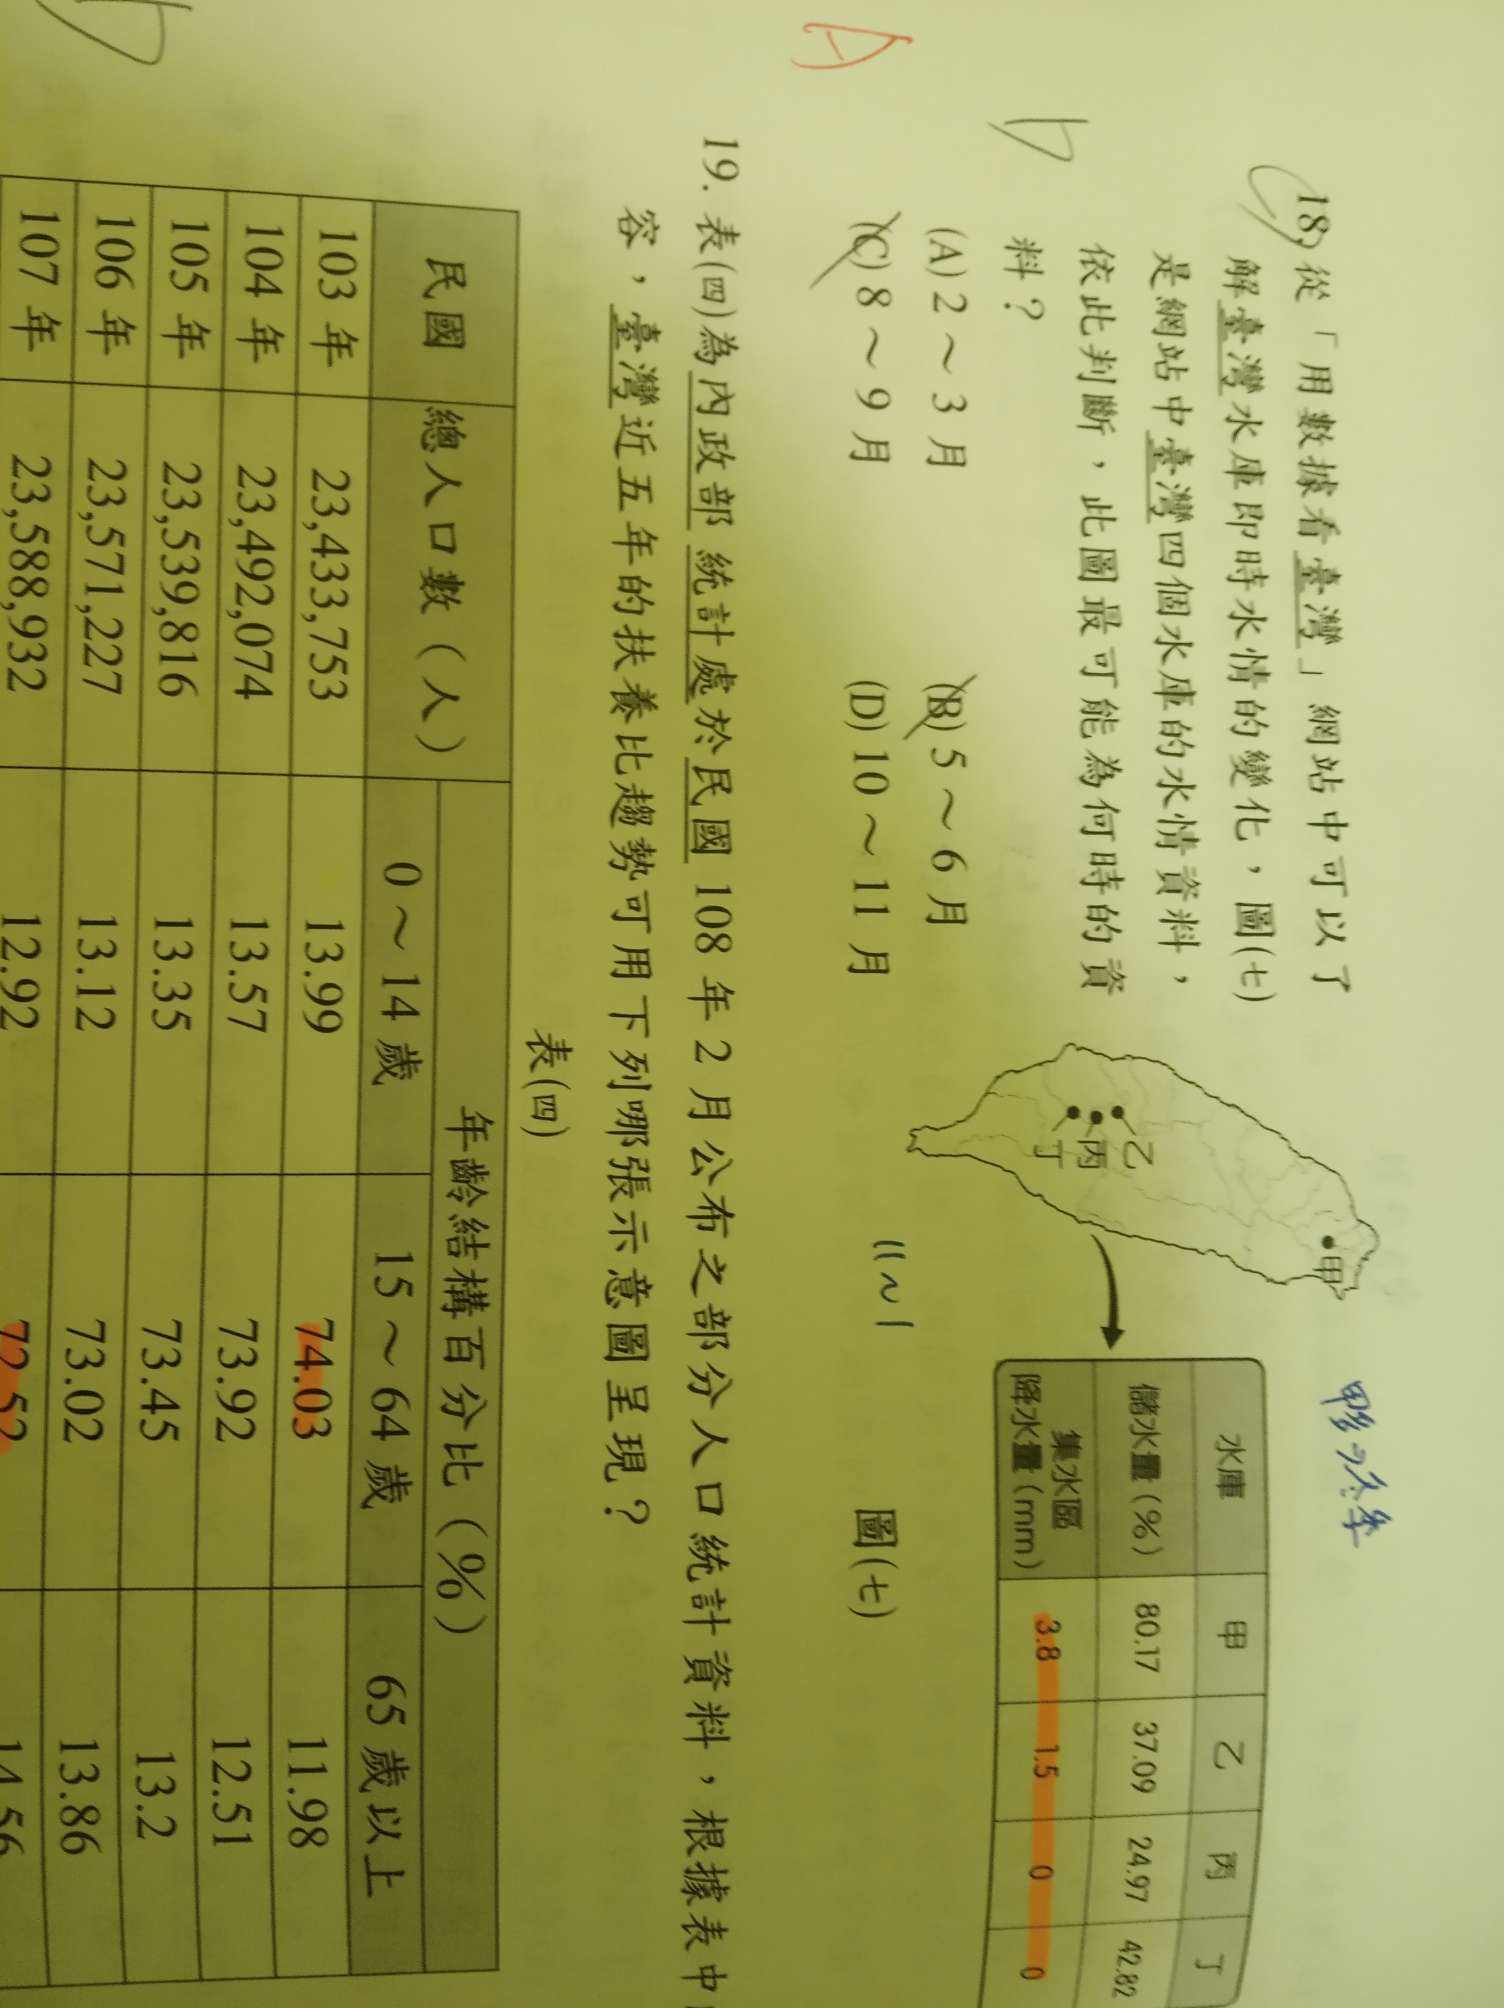 18. 從「用數據看臺灣」網站中可以了
解臺灣水庫即時水情的變化，圖(七)
是網站中臺灣四個水庫的水情資料，
依此判斷，此圖最可能為何時的資
料？
(A) 2～3 月 (B) 5～6 月
(C) 8～9 月 (D) 10～11 月
甲
乙
丙
丁
水庫 甲 乙 丙 丁
儲水量（%） 80.17 37.09 24.97 42.82
集水區
降水量（mm） 3.8 1.5 0 0
圖(七)
11～1
A
19. 表(四)為內政部統計處於民國 108 年 2 月公布之部分人口統計資料，根據表中
容，臺灣近五年的扶養比趨勢可用下列哪張示意圖呈現？
表(四)
民國 總人口數（人） 年齡結構百分比（%）
0～14 歲 15～64 歲 65 歲以上
103 年 23,433,753 13.99 74.03 11.98
104 年 23,492,074 13.57 73.92 12.51
105 年 23,539,816 13.35 73.45 13.2
106 年 23,571,227 13.12 73.02 13.86
107 年 23,588,932 12.92 72.52 14.56